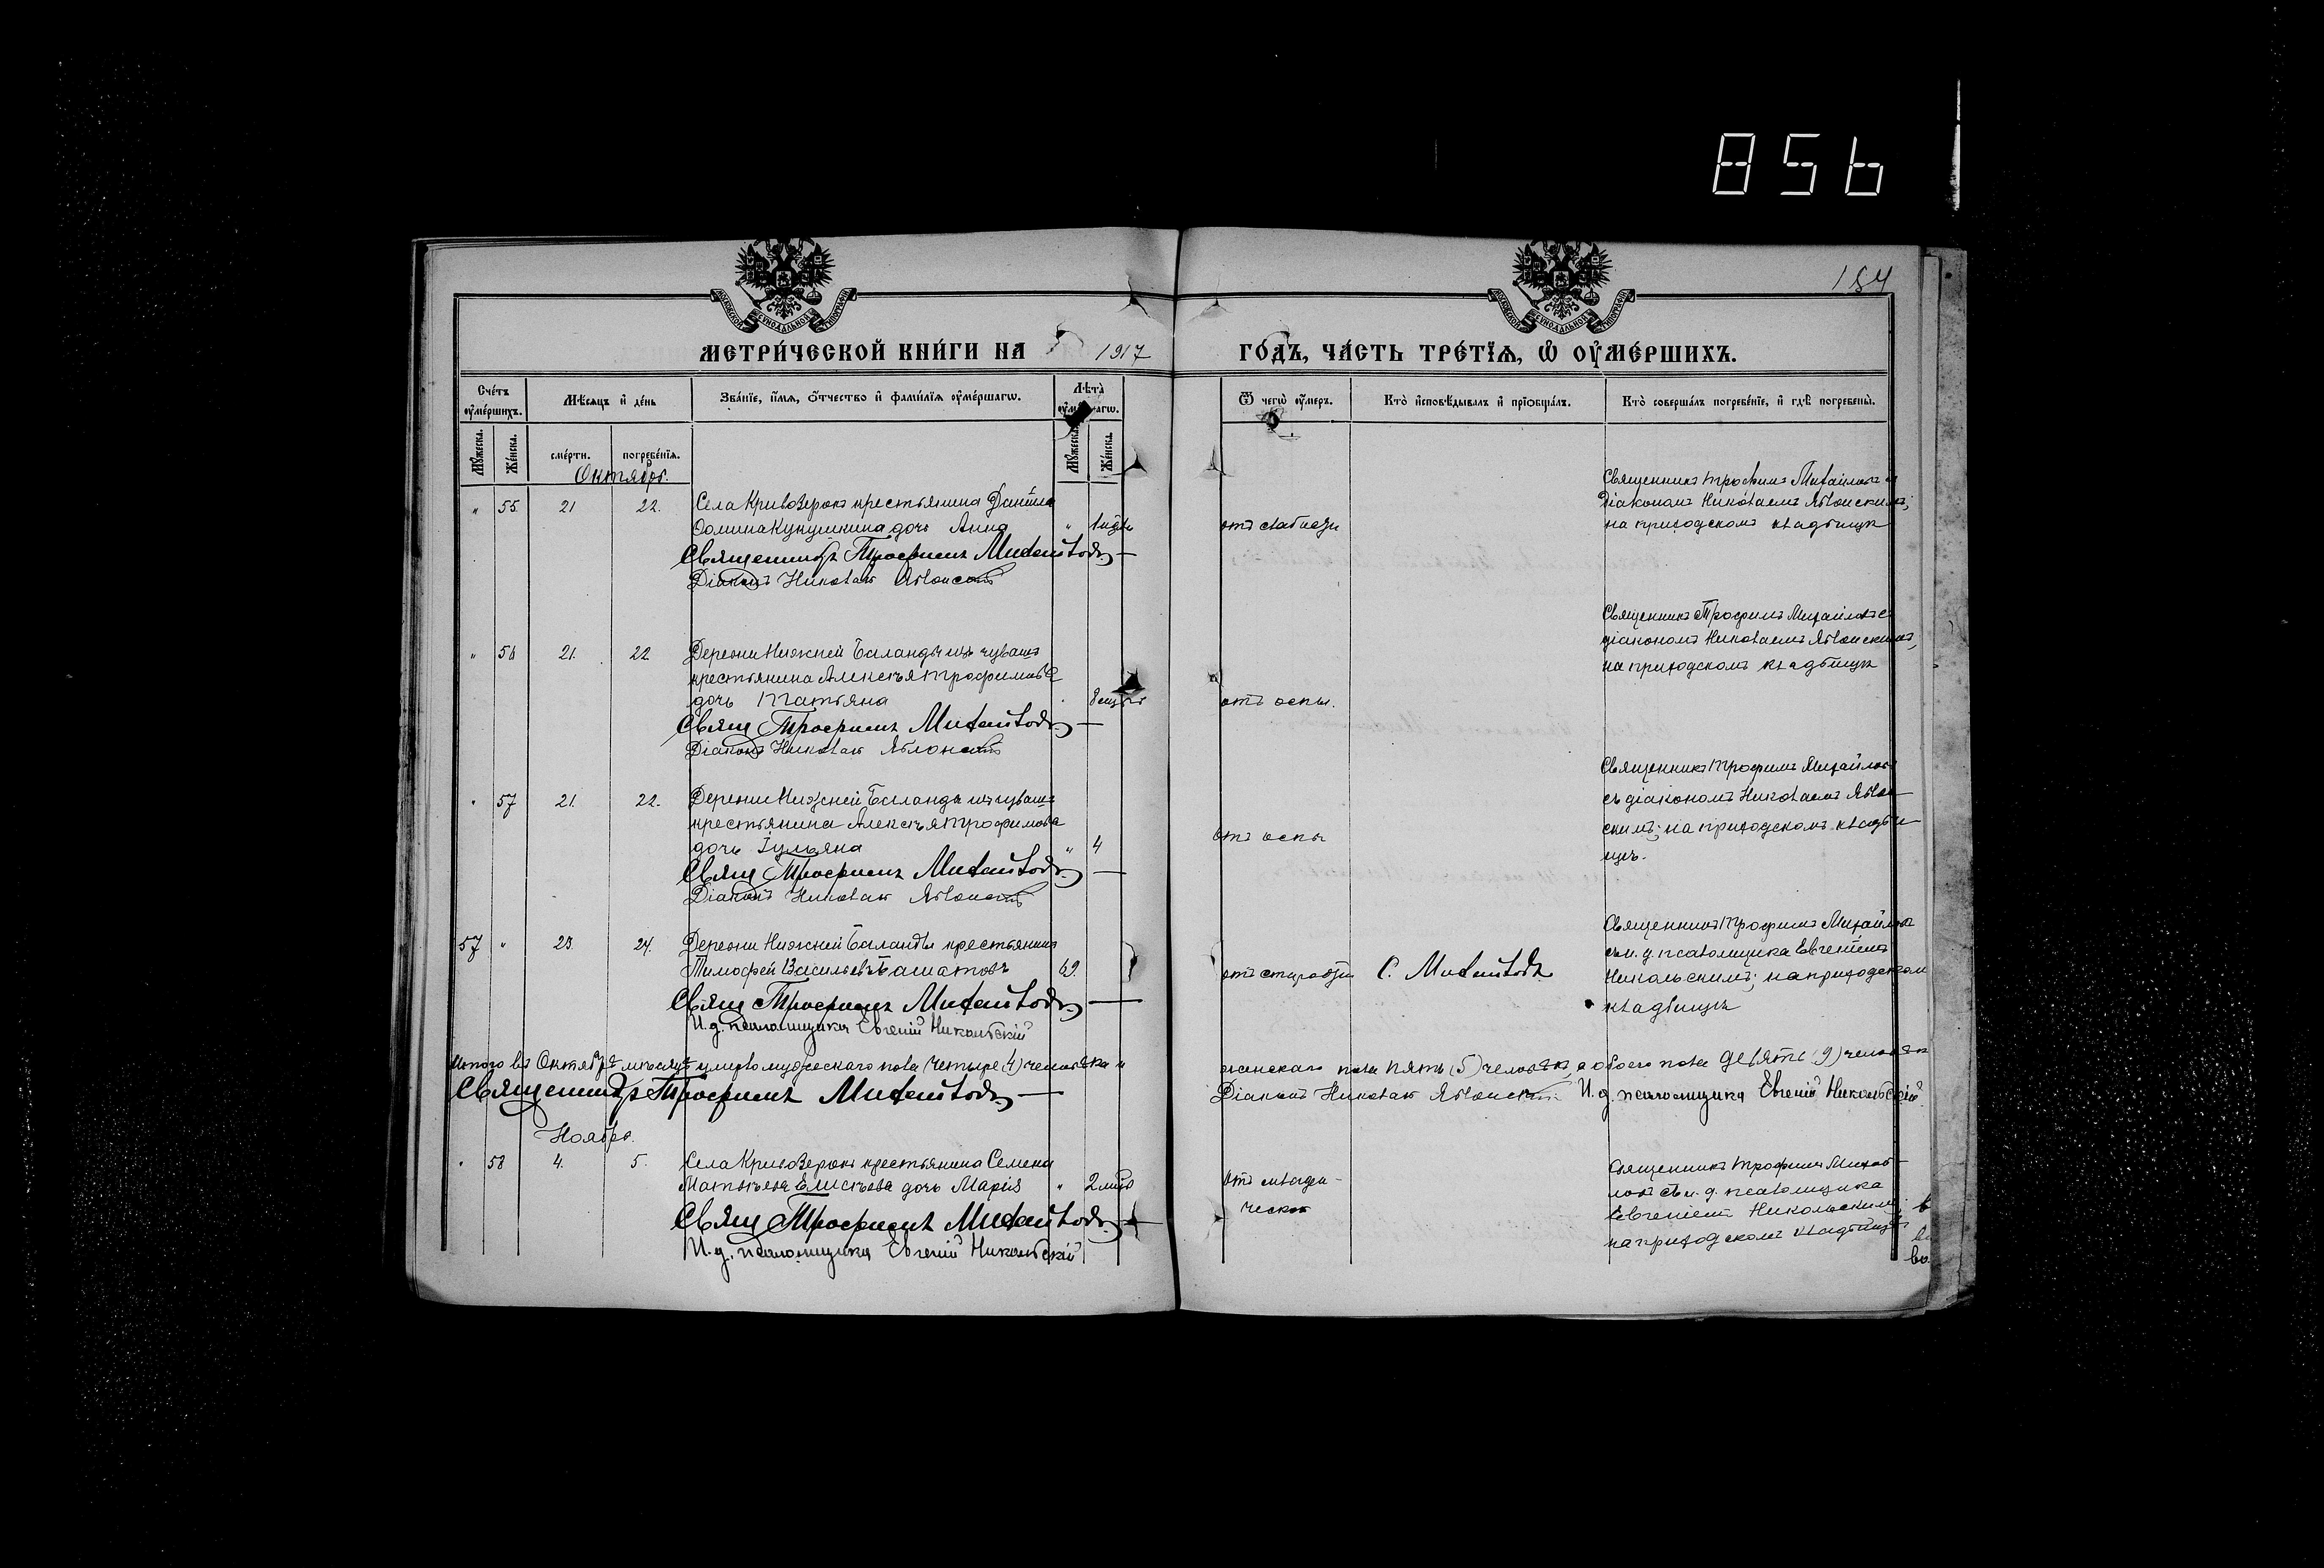 856
184
МЕТРИ́ЧЕСКОЙ КНИ́ГИ НА 1917
ГОДЪ, ЧА́СТЬ ТРЕ́ТІЯ, Ѡ҆ ОУ҆МЕ́РШИХЪ.
Сче́тъ оу҆ме́ршихъ.
Мѣ́сяцъ и҆ де́нь
Зва́нїе, и҆́мѧ, ѻ҆́тчество и҆ фами́лїѧ оу҆ме́ршагѡ.
Лѣ́та
Ѿ чегѡ̀ оу҆́меръ.
Кто̀ и҆сповѣ́дывалъ и҆ прїѻбща́лъ.
Кто̀ соверша́лъ погребе́нїе, и҆ гдѣ̀ погребены̀.
Мꙋ́жеска.
Же́нска.
сме́рти.
погребе́нїѧ.
Мꙋ́жеска.
Же́нска.
Октябрь.
" 55 21 22. Села Кривозерокъ крестьянина Даніила
дочь Анна "
Священникъ Трофимъ Михайловъ
Діаконъ Николай Яблонскій
отъ слабости
Священникъ Трофимъ Михайловъ съ
діакономъ Николаемъ Яблонскимъ;
на приходскомъ кладбищѣ
" 56 21. 22 Деревни Нижней Баланды изъ чувашъ
крестьянина Алексѣя Трофимова
дочь Татьяна
Свящ Трофимъ Михайловъ
Діаконъ Николай Яблонскій
отъ оспы.
Священникъ Трофимъ Михайловъ съ
діакономъ Николаемъ Яблонскимъ,
на приходскомъ кладбищѣ
" 57 21. 22. Деревни Нижней Баланды изъ чувашъ
крестьянина Алексѣя Трофимова
дочь Іульяна " 4
Свящ Трофимъ Михайловъ
Діаконъ Николай Яблонскій
отъ оспы
Священникъ Трофимъ Михайловъ
съ діакономъ Николаемъ Яблон-
скимъ; на приходскомъ кладби-
щѣ.
57 " 23. 24. Деревни Нижней Баланды крестьянинъ
Тимофей Васильевъ 69.
Свящ Трофимъ Михайловъ
И.д. псаломщика Евгеній Никольскій
отъ старости С. Михайловъ
Священникъ Трофимъ Михайловъ
съ и.д. псаломщика Евгеніемъ
Никольскимъ; на приходскомъ
кладбищѣ
Итого въ Октябрѣ мѣсяцѣ умерло мужескаго пола четыре (4) человѣка и
женскаго пола пять (5) человѣкъ, а обоего пола девять (9) человѣкъ
Священникъ Трофимъ Михайловъ
Діаконъ Николай Яблонскій. И.д. псаломщика Евгеній Никольскій
Ноябрь.
" 58 4. 5. Села Кривозерокъ крестьянина Семена
Матвѣева Елисѣева дочь Марія "
Свящ Трофимъ Михайловъ
И.д. псаломщика Евгеній Никольскій
отъ младен-
ческой
Священникъ Трофимъ Михай-
ловъ съ и.д. псаломщика
Евгеніемъ Никольскимъ;
на приходскомъ кладбищѣ